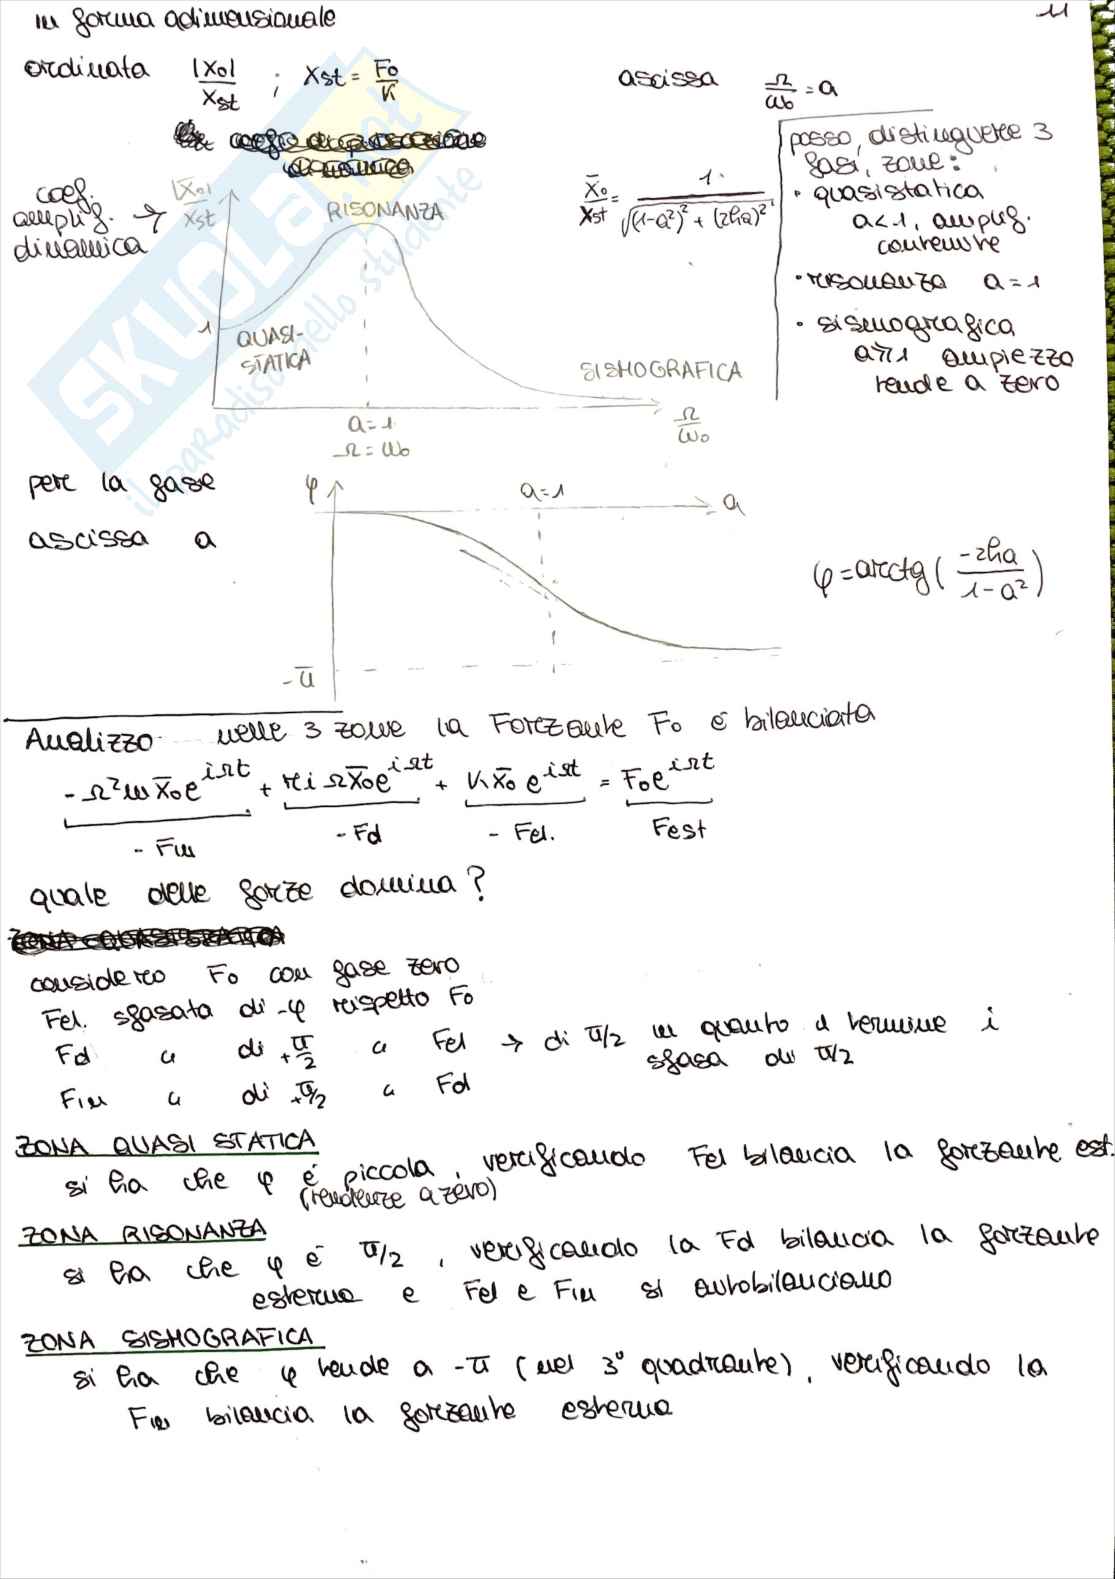 in forma adimensionale
11
ordinata |X₀|/Xst ; Xst = F₀/K
ascissa Ω/ω₀ = a
coef. amplif. dinamica → |X̄₀|/Xst
RISONANZA
X̄₀/Xst = 1/√((1-a²)² + (2ha)²)
posso, distinguere 3
fasi, zone:
• quasistatica
a<1, amplif.
contenute
• risonanza a=1
• sismografica
a≫1 ampiezza
tende a zero
1
QUASI-
STATICA
SISMOGRAFICA
a=1
Ω = ω₀
Ω/ω₀
per la fase
ascissa a
φ
a=1
a
-π
φ = arctg( -2ha / 1-a² )
Analizzo nelle 3 zone la Forzante F₀ è bilanciata
-Ω²m X̄₀e^iΩt + r i Ω X̄₀e^iΩt + K X̄₀ e^iΩt = F₀e^iΩt
- Fin - Fd - Fel. Fest
quale delle forze domina?
considero F₀ con fase zero
Fel. sfasata di -φ rispetto F₀
Fd " di +π/2 " Fel → di π/2 in quanto il termine i
sfasa di π/2
Fin " di +π/2 " Fd
ZONA QUASI STATICA
si ha che φ è piccola, verificando Fel bilancia la forzante est.
(tendente a zero)
ZONA RISONANZA
si ha che φ è π/2 , verificando la Fd bilancia la forzante
esterna e Fel e Fin si autobilanciano
ZONA SISMOGRAFICA
si ha che φ tende a -π (nel 3° quadrante), verificando la
Fin bilancia la forzante esterna
SKUOLA.net
il paradiso dello studente